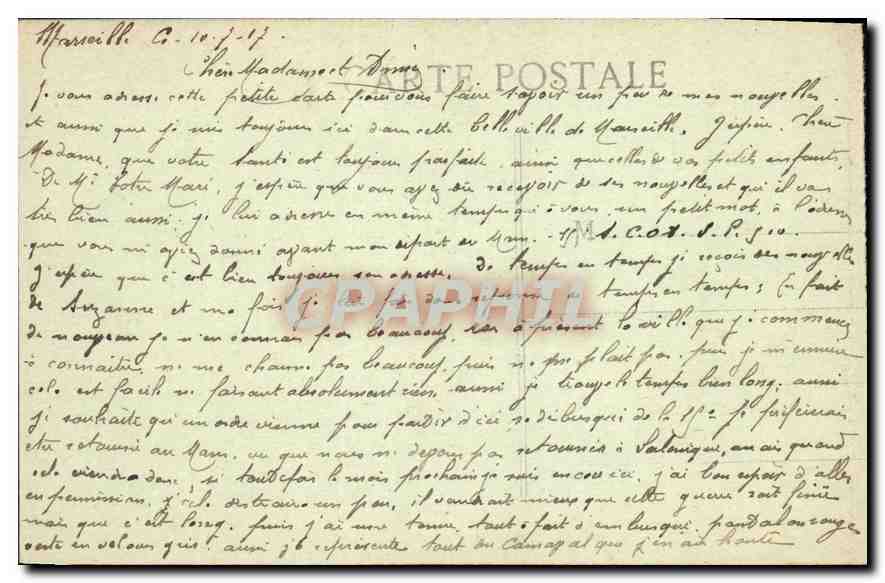 Marseille C. 10-7-17.
Chère Madame et Amie.
CARTE POSTALE
Je vous adresse cette petite carte pour vous faire savoir un peu de mes nouvelles.
et aussi que je suis toujours ici dans cette belle ville de Marseille. J'espère Chère
Madame, que votre santé est toujours parfaite, ainsi que celles de vos petits enfants,
De Mr Votre Mari, j'espère que vous ayez dû recevoir de ses nouvelles et qu'il va
très bien aussi; je lui adresse en même temps qu'à vous un petit mot, à l'adresse
que vous m'ayez donné avant mon départ du Mans.
j'espère que c'est bien toujours son adresse. De temps en temps je reçois des nouvelles
de Suzanne et ma foi je lui de temps en temps; En fait
de nouveau je n'en connais pas beaucoup, car à présent la ville que je commence
à connaître, ne me charme pas beaucoup, puis ne me plait pas, puis je m'ennuie
cela est facile ne faisant absolument rien, aussi je trouve le temps bien long; aussi
je souhaite qu'un ordre vienne pour partir d'ici se débusquer de la 15e je préférerais
être retourné au Mans, vu que nous ne devons pas retourner à Salonique, mais quand
cela viendra donc, si toutefois le mois prochain je suis encore ici, j'ai bon espoir d'aller
en permission, çà distraira un peu, il vaudrait mieux que cette guerre soit finie
mais que c'est long, puis j'ai une tenue tout à fait d'embusqué, pantalon rouge
veste en velours gris; aussi je représente tout du Carnaval que j'en ai honte
CPAPHIL